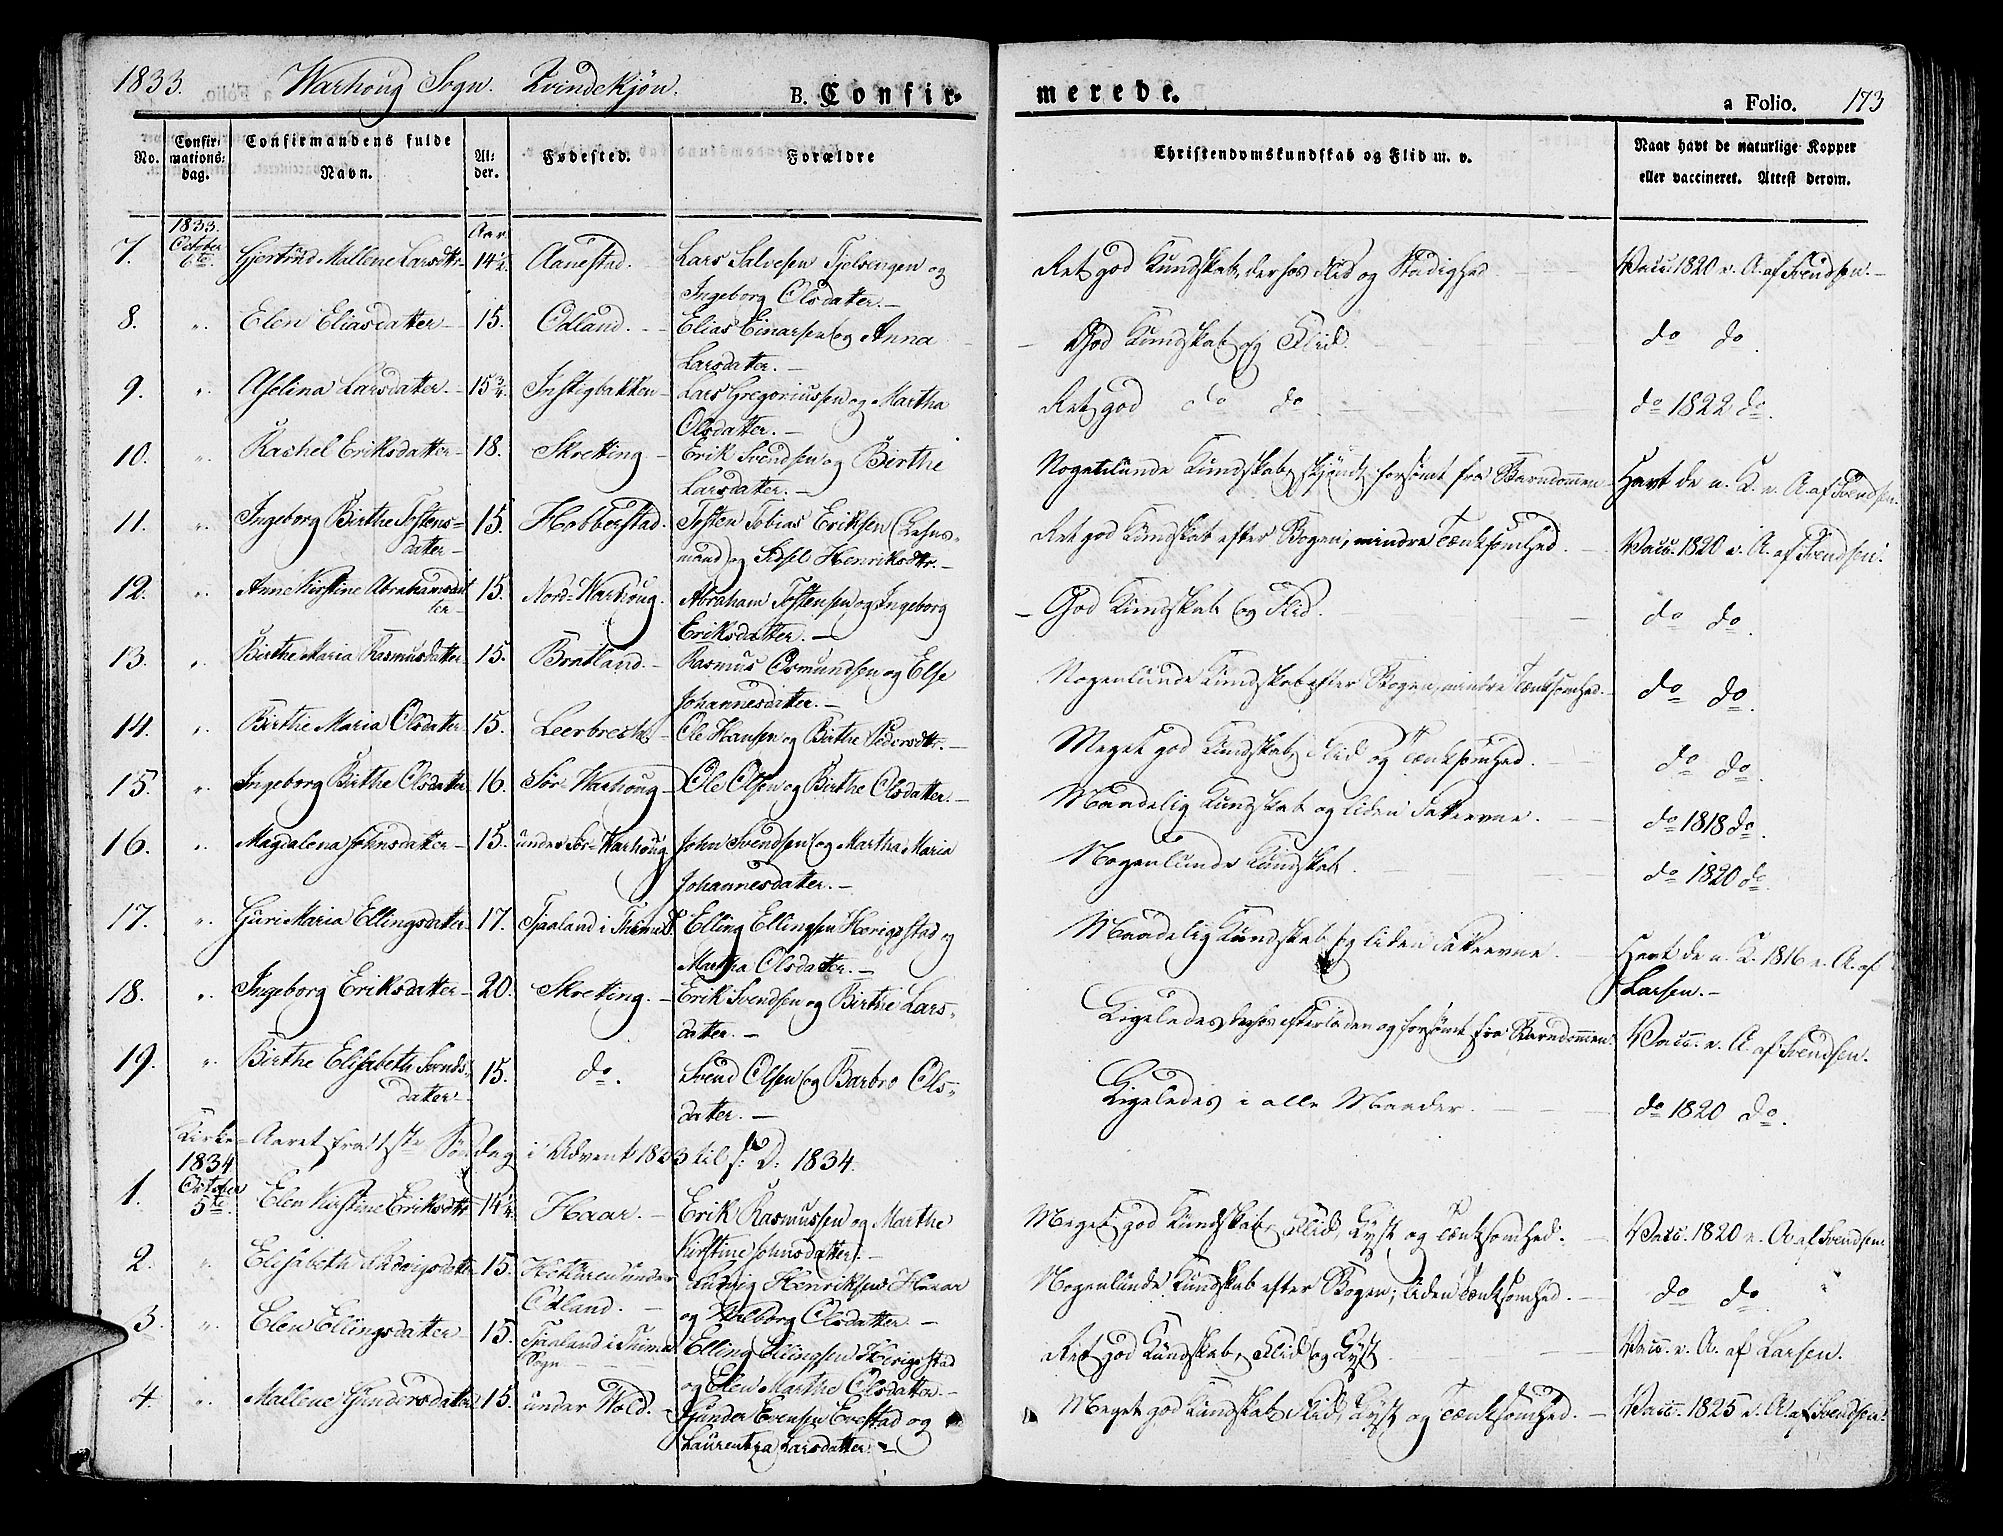 1833. Warhoug Sogn. Qvindekjøn. B. Confirmerede. a Folio. 173
No. Confirmations-dag. Confirmandens fulde Navn. Alder. Fødested. Forældre Christendomskundskab og Flid m. v. Naar havt de naturlige Kopper eller vaccineret. Attest derom.
1833. Aar
7. October 6te Gjertrud Mallene Larsdttr. 14½. Aanestad. Lars Salvesen Tjelsengen og Ret god Kundskab, derhos Flid og Stadighed Vacc. 1820 e. A. af Svendsen.
Ingeborg Olsdatter.
8. ". Elen Eliasdatter 15. Odland. Elias Einarsen og Anna God Kundskab og Flid. do do.
Larsdatter.
9. ". Aselina Larsdatter. 15¾. Instigbakken Lars Gregoriussen og Martha Ret god do do do 1822 do.
Olsdatter.
10. ". Rachel Eriksdatter 18. Skretting Erik Svendsen og Birthe Nogenlunde Kundskab, skjøndt forsømt fra Barndommen Havt de n. K. e. A. af Svendsen.
Larsdatter.
11. ". Ingeborg Birthe Tostens- 15. Hobberstad. Tosten Tobias Eriksen (Lehns- Ret god Kundskab efter Bogen, mindre Tænksomhed. Vacc. 1820 e. A. af Svendsen.
datter mand) og Sidsel Henriksdtr.
12. ". Anne Kirstine Abrahamsdat 15. Nord-Warhoug. Abraham Tostensen og Ingeborg God Kundskab og Flid. do do.
ter Eriksdatter.
13. ". Birthe Maria Rasmusdatter 15. Bratland. Rasmus Osmundsen og Else Nogenlunde Kundskab efter Bogen, mindre Tænksomhed. do do.
Johannesdatter.
14. ". Birthe Maria Olsdatter 15. Leerbrecht Ole Hansen og Birthe Pedersdtr. Meget god Kundskab, Flid og Tænksomhed. do do.
15. ". Ingeborg Birthe Olsdatter 16. Sør-Warhoug Ole Olsen og Birthe Olsdatter. Maadelig Kundskab og liden Fatteevne. do 1818 do.
16. ". Magdalena Johnsdatter 15. under Sør-Warhoug John Svendsen og Martha Maria Nogenlunde Kundskab. do 1820 do.
Johannesdatter.
17. ". Guri Maria Ellingsdatter 17. Tjaaland i Thime S. Elling Ellingsen Herigstad og Maadelig Kundskab og liden Fatteevne. Havt de n. K. 1816 e. A. af
Martha Olsdatter. Larsen.
18. ". Ingeborg Eriksdatter 20. Skretting. Erik Svendsen og Birthe Lars- Ligeledes, derhos efterladen og forsømt fra Barndommen. Vacc. e. A. af Svendsen.
datter.
19. ". Birthe Elisabeth Svends- 15. do. Svend Olsen og Barbro Ols- Ligeledes i alle Maader. do 1820 do.
datter datter.
Kirke-Aaret fra 1ste Søndag i Advent 1833 til s: D: 1834.
1834
1. October 5te Elen Kirstine Eriksdtr 14½. Haar. Erik Rasmussen og Marthe Meget god Kundskab, Flid, Lyst og Tænksomhed. Vacc. 1820 e. A. af Svendsen.
Kirstine Johnsdatter.
2. ". Elisabeth Ludvigsdatter 15. under Ludvig Henriksen Haar Nogenlunde Kundskab efter Bogen; liden Tænksomhed. do do "
Odland. og Vilborg Olsdatter
3. ". Elen Ellingsdatter 15. Tjaaland i Thime Elling Ellingsen Herigstad Ret god Kundskab, Flid og Lyst Vacc. e. A. af Larsen.
Sogn og Elen Marthe Olsdatter.
4. ". Mallene Gundersdatter 15. under Wold. Gunder Evensen Evestad og Meget god Kundskab, Flid, Lyst og Tænksomhed. Vacc. 1825 e. A. af Svendsen.
Laurentza Larsdatter.